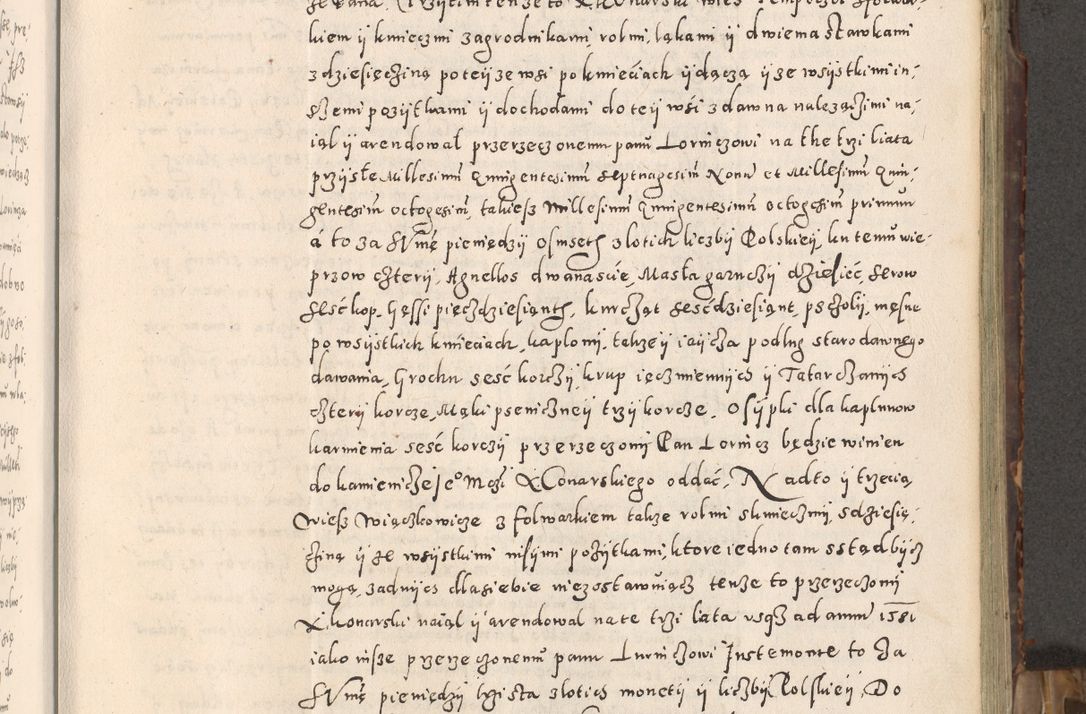 kiem ÿ kmieczmi zagrodnikami, rolmi, ląkami ÿ dwiema stawkami
z dziesięcziną poteÿ ze wsi po kmieciach ÿdączą ÿ ze wsÿstkimi in-
szemi pozÿtkami ÿ dochodami do teÿ wsi z dawna nalezączimi na-
iąl ÿ arendowal przerzeczonemu panu Lorinczowi na the trzi liata
przÿsłe Millesimũ Quingentesimũ Septuagesimũ Nonũ et Millesimũ Quin-
gentesimũ octogesimũ, takiesz Millesimũ Quingentesimũ octogesimũ primum
á to za Sũmę pieniędzÿ osmseth zlotich liczbÿ Polskieÿ, ku temu wie-
przow czterÿ, Agnellos dwanascie, Masła garnczÿ dziesięć, Serow
sesć kop, Gęssi pięczdziesianth, kurcząt sesćdziesiąnt, psczolÿ, męsne
po wsÿstkich kmieciach, kaplonÿ, takze ÿ iaÿcza podlug starodawnego
dawania, Grochu sesć korczÿ, krup ięczmiennÿch ÿ Tatarczanÿch
czterÿ korcze, Mąki pseniczneÿ trzÿ korcze, Osÿpki dla kaplunow
karmienia sesć korczÿ przerzeczonÿ Pan Lorincz będzie winien
do kamienicze Jeº Mczi X Conarskiego oddać, Nadto ÿ trzecią
wiesz Wiączkowicze z folwarkiem takze rolmi skmieczmi, sdziesię-
cziną ÿ ze wsÿstkimi insÿmi pozÿtkami, ktore iedno tam s stąd bÿcz
mogą, zadnÿch dlasiebie niezostawuiącz tenze to przerzeczonÿ
X. konarski naiąl ÿ arendowal na te trzi liata usqz ad annũ 1581
iako insze przerzeczonemũ panu Lurinczowi Justemonte to za
Sũmę pieniędzÿ sta zlotich monetÿ ÿ liczbÿ Polskieÿ, Do